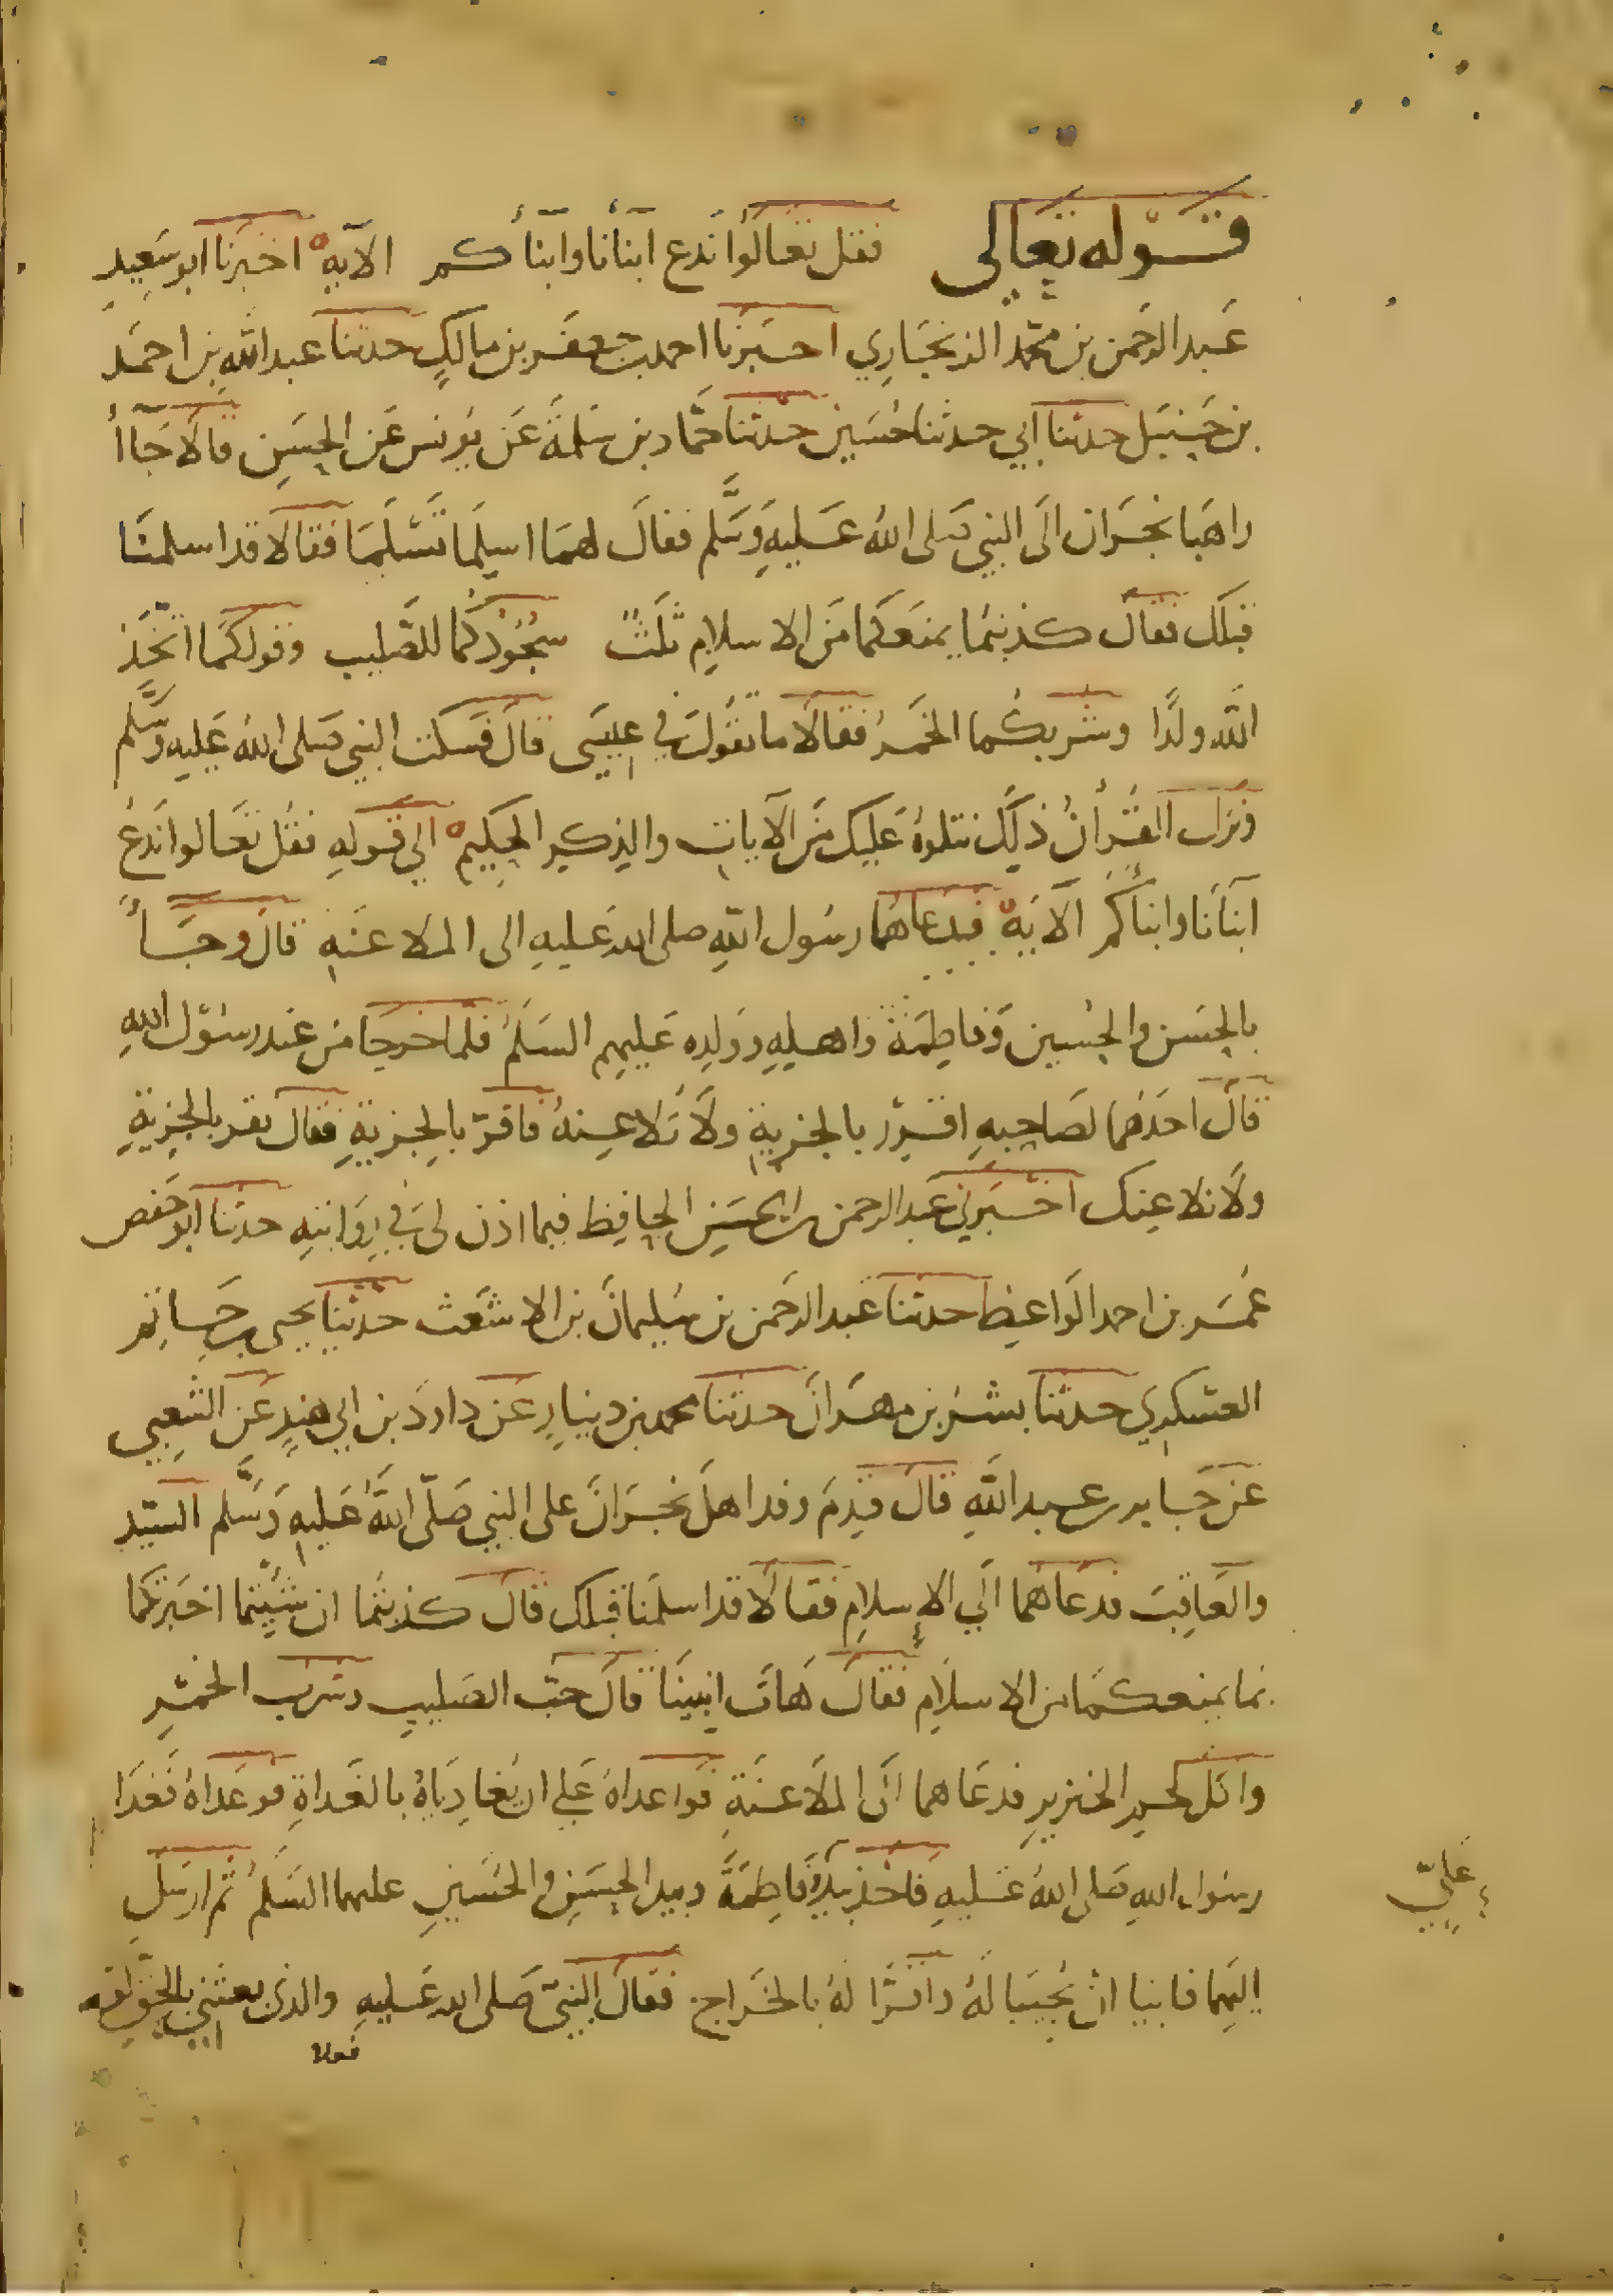 قوله تعالى فقل تعالوا ندع ابنانا وابنأكم الآية اخبرنا ابو سَعِيدِ
عَبد الرحمن بن محمّد الزنجاري اخبرنا احمد بن جعفر بن مالكٍ حدثنا عبد اللهِ بن احمَد
بن حَنبَل حدثنا ابي حدثنا حُسَين حدثنا حمّاد بن سَلمَةَ عَن يونس عَن الحسَنِ قالا جَاأ
راهبا نجران الى النبي صَلى اللهُ عَليهِ وَسَّلم فقال لهمَا اسلِمَا تَسْلَمَا فقالا قد اسلمنَا
قبلك فقال كذبتما يمنعَكما مَن الاسلامِ ثلثٌ سجُوْدُكما للصَّليب وقولكما اتخَذ
اللهُ ولدًا وشربكما الخمرُ فقالا ما تقُولُ في عِيسَى قالَ فسكت النبي صَلى اللهُ عَليهِ وسَّلم
ونزل القُرأنُ ذلِكَ نتلوهُ عَليكَ مَن الآياتِ والذِكر الحكِيم الي قولهِ فقُل تعَالوا ندعُ
ابنأنا وابناكُم الآيَة فدعاهُما رسُول اللّهِ صلى الله عَليهِ الى الملاعنَهِ قالَ وجَاأَ
بالحسَن والحُسين وَفاطِمَةَ واهلِهِ وَولدِه عَليهِم السَلَمُ فلما خرجَا من عند رسُوْل اللهِ
قالَ احَدهُما لصَاحِبهِ اقرِرْ بالجزيةِ ولَا تلاعِنهُ فاقرّ بالجزيةِ فقال نقر بالجِزيةِ
ولَا نلاعِنك اخبَرني عَبد الرحمن بن الحسَن الحافِظ فيما اذن لي في رِوَايتِهِ حدثنا ابو حَفص
عُمَر بن احمد الوَاعِظ حدثنا عَبد الرحَمن بن سُليمانَ بن الاشعَث حَدثنا يحيى بن حَاتِم
العسكري حدثنا بشرُ بن مهرانَ حدثنا محمد بن دينارٍ عَن داودَ بن ابي هندٍ عَن الشَعِبي
عَن جَابر بن عبد اللهِ قالَ قدِمَ وفد اهلَ نجرَانَ على النبي صَلّى اللهُ عَليهِ وَسَّلم السَيّد
والعَاقِبَ فدعَاهُما الَي الاِسلامِ فقالَا قد اسلمنَا قبلك قالَ كذبتُما ان شَئِتما اخبَرتكما
بما يمنعكمَا من الاسلامِ فقالَ هَات ابنينَا قالَ حبّ الصَليبِ وشربَ الخَمْرِ
واكل لحم الخنزيرِ فدعَاهما الَى الملَاعنَةِ فواعداهُ عَلي ان يُغادِيَاهُ بالغَداةِ فوعَداهُ فَغدَا
رسُول اللهِ صَلى اللهُ عَليهِ فاخذ بيدُ فَاطِمَةَ وبيد الحسَنِ والحُسَينِ عليهما السَلَمُ ثم ارسَل
عَليّ
اليَهما فابيا ان يُجيبَا لَهُ واقرّا لَهُ بالخَراج فقالَ النبيّ صَلى الله عَليهِ والذي بعثني بالحَقّ لو
فعلا